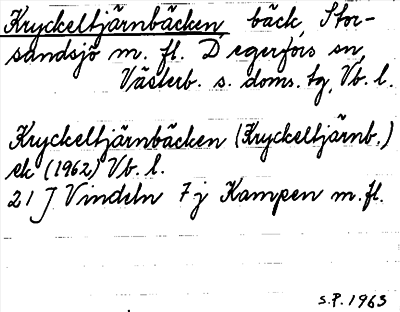 Kryckeltjärnbäcken, bäck, Stor-
sandsjö m. fl. Degerfors sn,
Västerb. s. doms. tg, Vb. l.
Kryckeltjärnbäcken (Kryckeltjärnb.)
ek (1962) Vb. l.
21 J Vindeln 7 j Kampen m. fl.
S.P. 1963